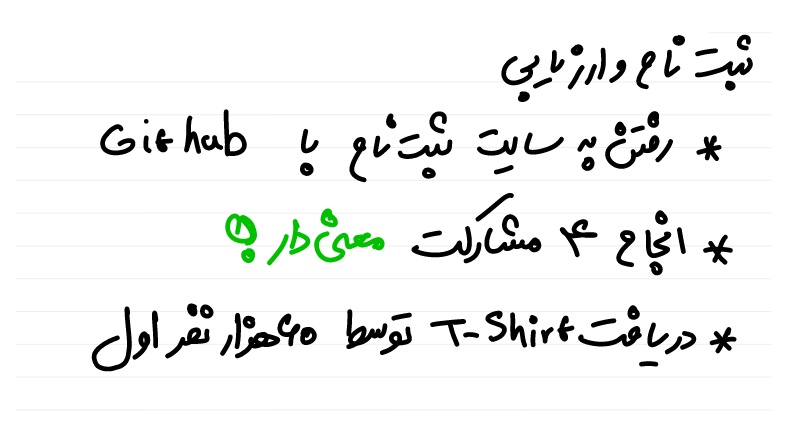 ثبت نام و ارزیابی
* رفتن به سایت ثبت نام با Github
* انجام ۴ مشارکت معنی دار !؟
* دریافت T-Shirt توسط ۴۰ هزار نفر اول